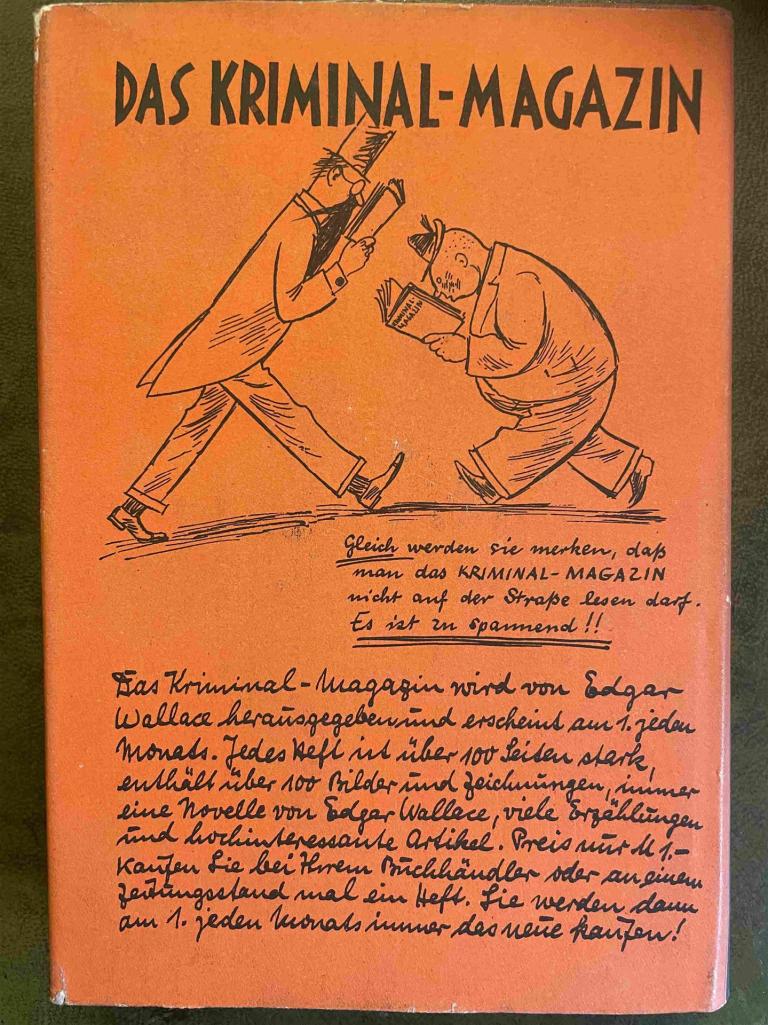 DAS KRIMINAL-MAGAZIN
KRIMINAL-
MAGAZIN
Gleich werden sie merken, daß
man das KRIMINAL-MAGAZIN
nicht auf der Straße lesen darf.
Es ist zu spannend!!
Das Kriminal-Magazin wird von Edgar
Wallace herausgegeben und erscheint am 1. jeden
Monats. Jedes Heft ist über 100 Seiten stark,
enthält über 100 Bilder und Zeichnungen, immer
eine Novelle von Edgar Wallace, viele Erzählungen
und hochinteressante Artikel. Preis nur M 1.-
Kaufen Sie bei Ihrem Buchhändler oder an einem
Zeitungsstand mal ein Heft. Sie werden dann
am 1. jeden Monats immer das neue kaufen!